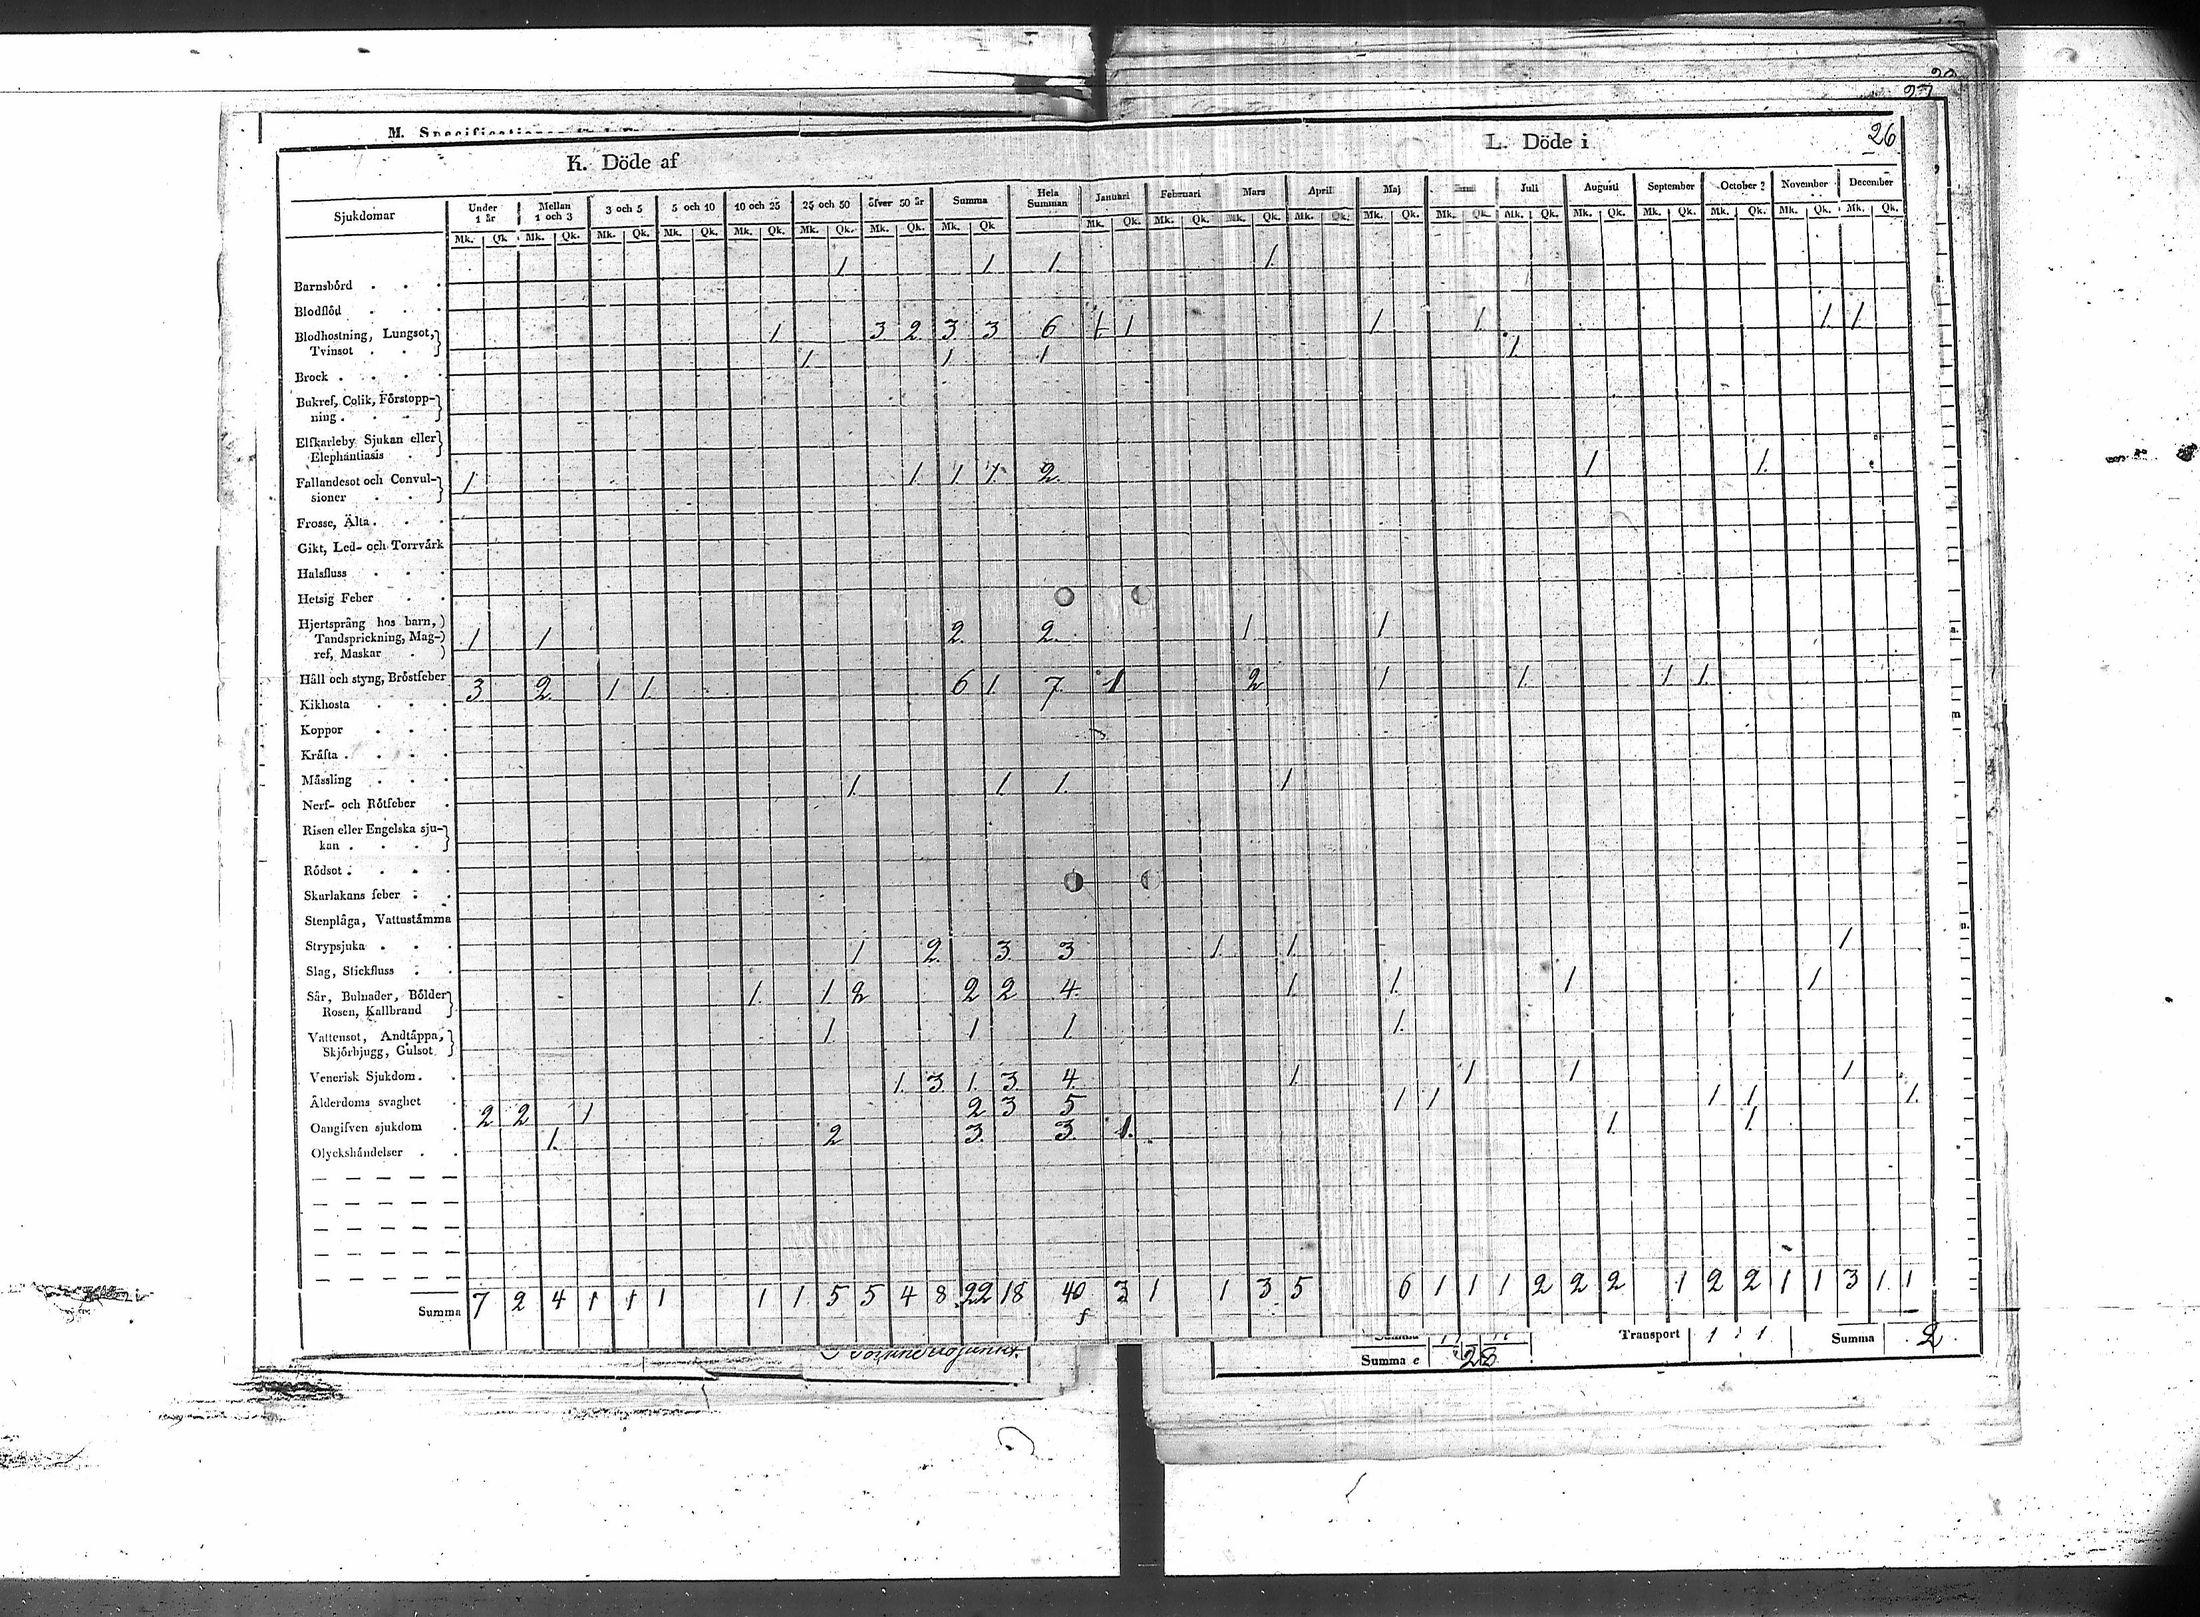 22
27
M. Specificationer
K. Döde af
L. Döde i
26
Sjukdomar
Under 1 år
Mellan 1 och 3
3 och 5
5 och 10
10 och 25
25 och 50
öfver 50 år
Summa
Hela Summan
Januari
Februari
Mars
April
Maj
Juni
Juli
Augusti
September
October
November
December
Mk. Qk. Mk. Qk. Mk. Qk. Mk. Qk. Mk. Qk. Mk. Qk. Mk. Qk. Mk. Qk. Mk. Qk. Mk. Qk. Mk. Qk. Mk. Qk. Mk. Qk. Mk. Qk. Mk. Qk. Mk. Qk. Mk. Qk. Mk. Qk. Mk. Qk. Mk. Qk.
Barnsbörd . . . 1 1 1. 1.
Blodflöd . . .
Blodhostning, Lungsot,} 1 3 2 3. 3 6 1 1 1 1. 1 1.
Tvinsot . . }
Brock . . . . 1. 1 1 1.
Bukref, Colik, Förstopp-}
ning . . . }
Elfkarleby Sjukan eller}
Elephantiasis . }
Fallandesot och Convul-} 1. 1 1 1. 2. 1 1.
sioner . . }
Frosse, Älta . . .
Gikt, Led- och Torrvärk
Halsfluss . . .
Hetsig Feber . .
Hjertsprång hos barn,) 1 1 2. 2. 1 1
Tandsprickning, Mag-)
ref, Maskar . )
Håll och styng, Bröstfeber
Kikhosta . . . 3. 2. 1. 1. 6 1. 7. 1 2 1 1. 1. 1.
Koppor . . .
Kräfta . . . .
Mässling . . .
Nerf- och Rötfeber . 1. 1. 1. 1
Risen eller Engelska sju-}
kan . . . }
Rödsot . . . .
Skarlakans feber . .
Stenplåga, Vattustämma
Strypsjuka . . .
Slag, Stickfluss . . 1 2. 3. 3 1. 1. 1
Sår, Bulnader, Bölder} 1. 1. 2 2 2 4. 1. 1. 1 1
Rosen, Kallbrand }
Vattensot, Andtäppa,} 1 1 1. 1.
Skjörbjugg, Gulsot }
Venerisk Sjukdom . .
Ålderdoms svaghet . 1. 3 1. 3. 4. 1 1 1 1
Oangifven sjukdom . 2 2 1 2 3 5 1 1 1 1 1.
Olyckshändelser . . 1. 2 3. 3. 1. 1. 1.
Summa 7 2 4 1 1 1 1 1. 5 5 4 8. 22 18 40 3 1 1 3 5 6 1 1 1 2 2 2 1 2 2 1 1 3 1. 1
f
Summa e 28
Transport 1 1
Summa 2